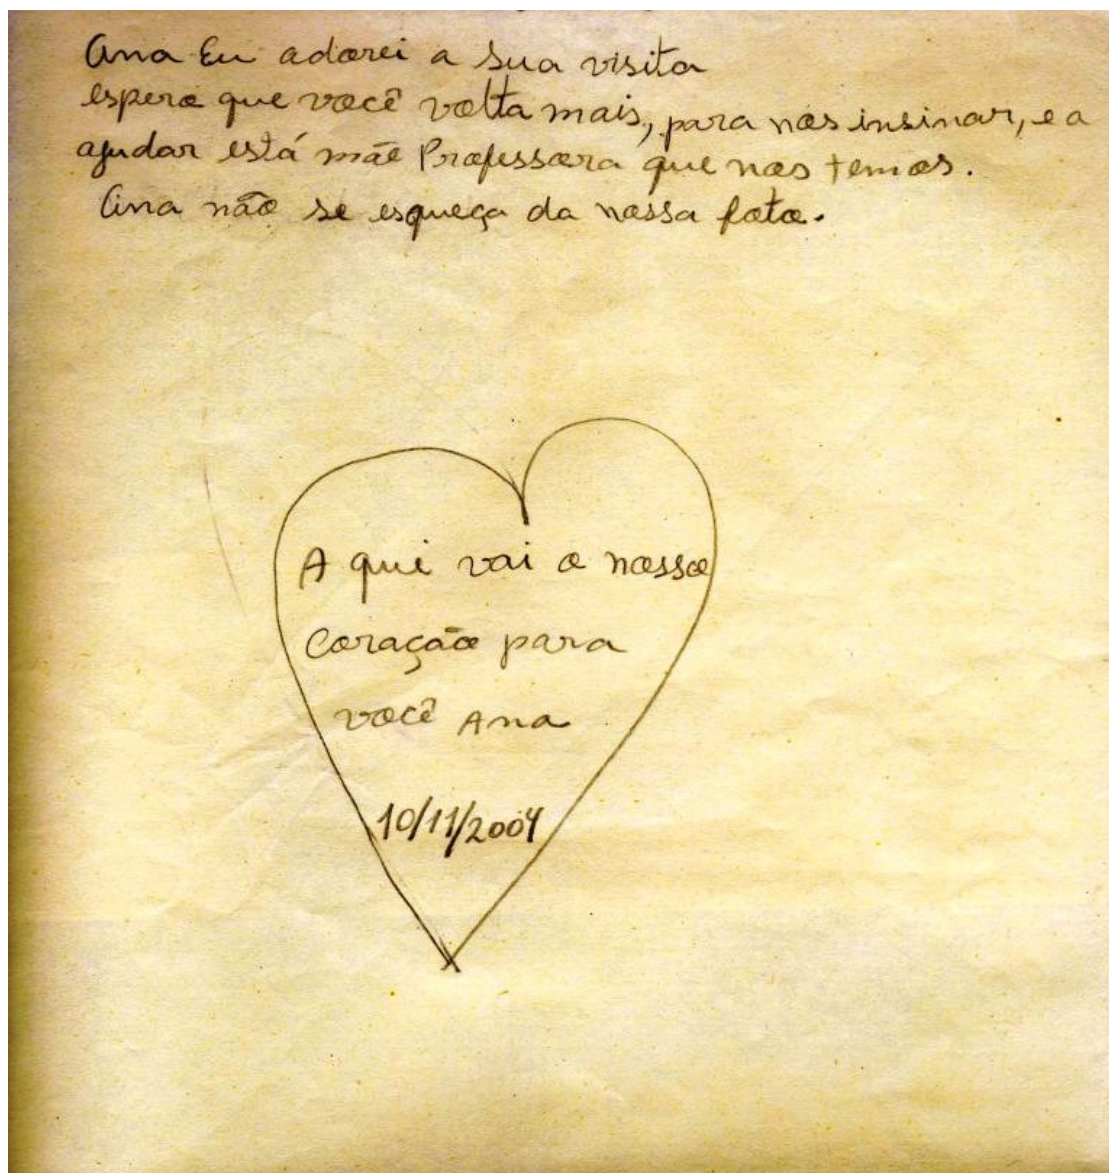 Ana Eu adorei a sua visita
espero que você volta mais, para nos insinar, e a
ajudar está mãe Professora que nos temos.
Ana não se esqueça da nossa foto.
A qui vai o nosso
Coração para
você Ana
10/11/2004